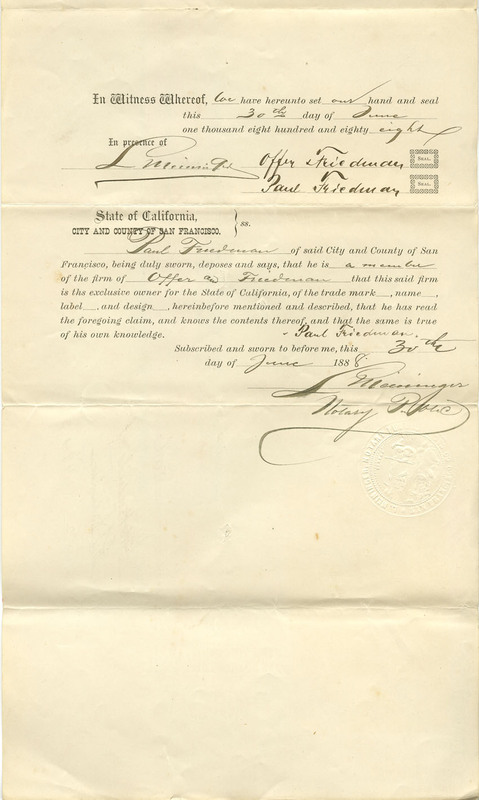 In Witness Whereof, We have hereunto set our hand and seal
this 30th day of June
one thousand eight hundred and eighty eight
In presence of
L Meininger Offer & Friedman SEAL.
Paul Friedman SEAL.
State of California, } ss.
CITY AND COUNTY OF SAN FRANCISCO.
Paul Friedman of said City and County of San
Francisco, being duly sworn, deposes and says, that he is a member
of the firm of Offer & Friedman that this said firm
is ths exclusive owner for the State of California, of the trade mark, name,
label, and design, hereinbefore mentioned and described, that he has read
the foregoing claim, and knows the contents thereof, and that the same is true
of his own knowledge. Paul Friedman.
Subscribed and sworn to before me, this 30th
day of June 1888.
L Meininger
Notary Public